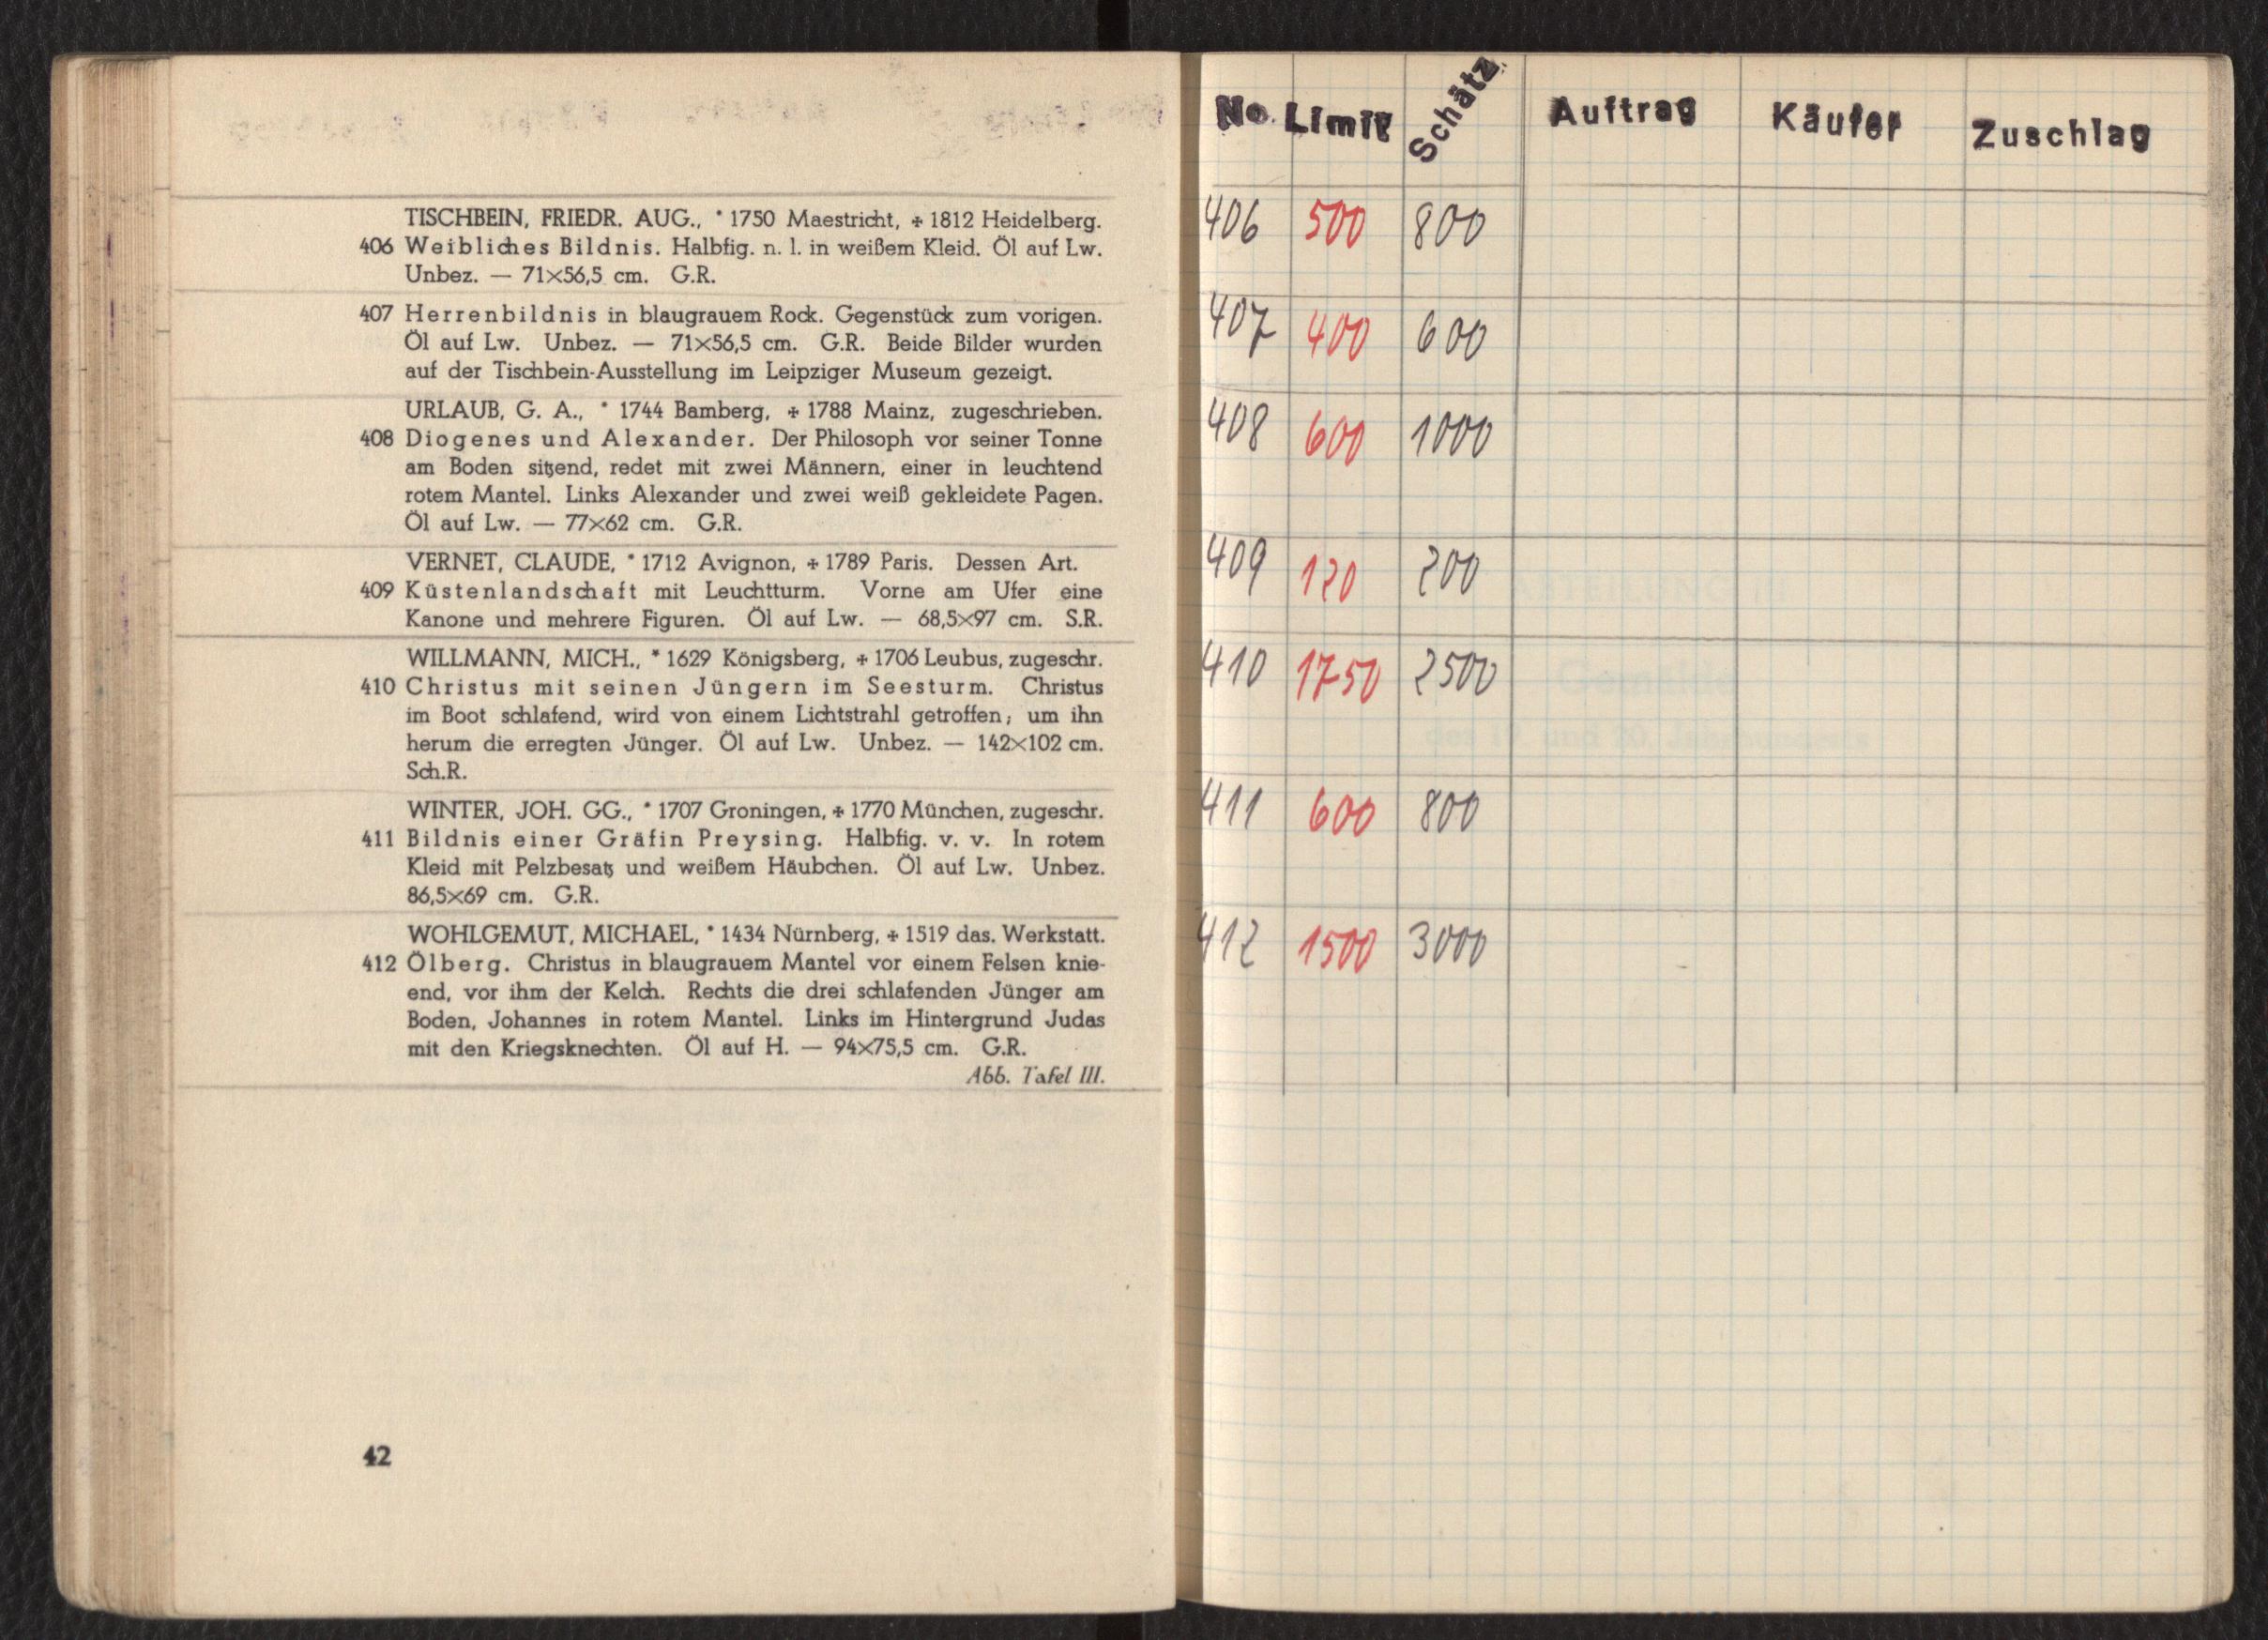 TISCHBEIN, FRIEDR. AUG., * 1750 Maestricht, + 1812 Heidelberg.
406 Weibliches Bildnis. Halbfig. n. l. in weißem Kleid. Öl auf Lw.
Unbez. — 71×56,5 cm. G.R.
407 Herrenbildnis in blaugrauem Rock. Gegenstück zum vorigen.
Öl auf Lw. Unbez. — 71×56,5 cm. G.R. Beide Bilder wurden
auf der Tischbein-Ausstellung im Leipziger Museum gezeigt.
URLAUB, G. A., * 1744 Bamberg, + 1788 Mainz, zugeschrieben.
408 Diogenes und Alexander. Der Philosoph vor seiner Tonne
am Boden sitzend, redet mit zwei Männern, einer in leuchtend
rotem Mantel. Links Alexander und zwei weiß gekleidete Pagen.
Öl auf Lw. — 77×62 cm. G.R.
VERNET, CLAUDE, * 1712 Avignon, + 1789 Paris. Dessen Art.
409 Küstenlandschaft mit Leuchtturm. Vorne am Ufer eine
Kanone und mehrere Figuren. Öl auf Lw. — 68,5×97 cm. S.R.
WILLMANN, MICH., * 1629 Königsberg, + 1706 Leubus, zugeschr.
410 Christus mit seinen Jüngern im Seesturm. Christus
im Boot schlafend, wird von einem Lichtstrahl getroffen; um ihn
herum die erregten Jünger. Öl auf Lw. Unbez. — 142×102 cm.
Sch.R.
WINTER, JOH. GG., * 1707 Groningen, + 1770 München, zugeschr.
411 Bildnis einer Gräfin Preysing. Halbfig. v. v. In rotem
Kleid mit Pelzbesatz und weißem Häubchen. Öl auf Lw. Unbez.
86,5×69 cm. G.R.
WOHLGEMUT, MICHAEL, * 1434 Nürnberg, + 1519 das. Werkstatt.
412 Ölberg. Christus in blaugrauem Mantel vor einem Felsen knie-
end, vor ihm der Kelch. Rechts die drei schlafenden Jünger am
Boden, Johannes in rotem Mantel. Links im Hintergrund Judas
mit den Kriegsknechten. Öl auf H. — 94×75,5 cm. G.R.
Abb. Tafel III.
42
No. Limit Schätz. Auftrag Käufer Zuschlag
406 500 800
407 400 600
408 600 1000
409 120 200
410 1750 2500
411 600 800
412 1500 3000